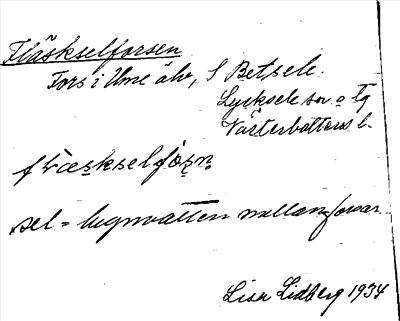 Fläskselforsen
Fors i Ume älv, S Betsele.
Lycksele sn o Tg
Västerbottens l.
fläskselfọṣṇ
sel = lugnvatten mellan forsar.
Lisa Lidberg 1934